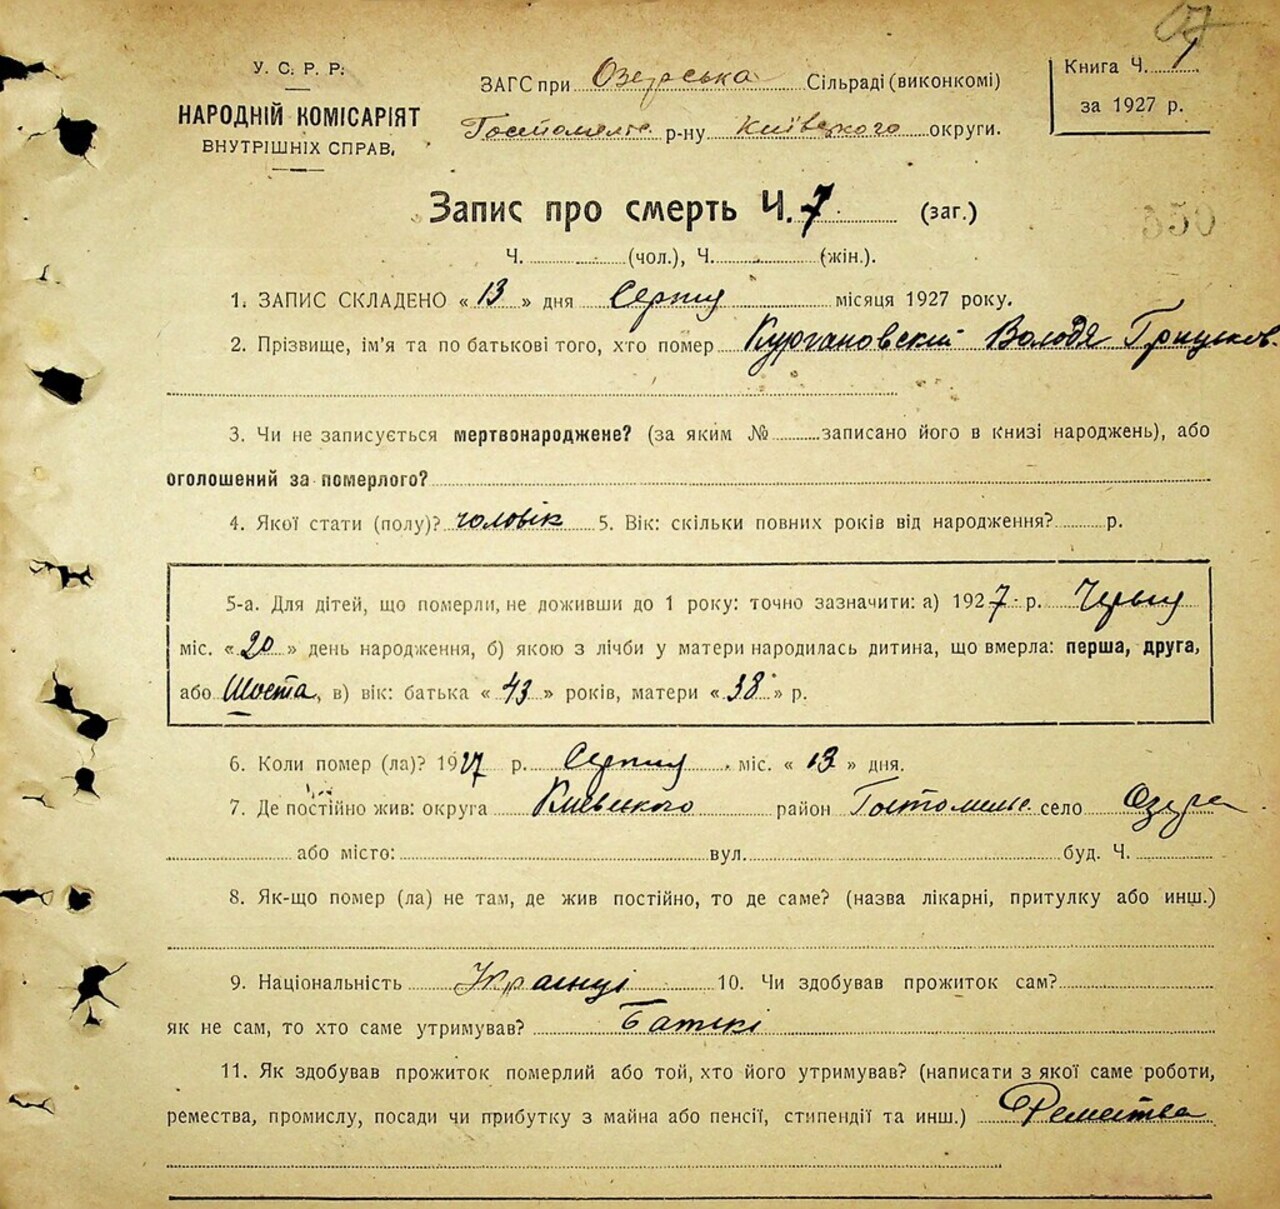 У. С. Р. Р.
НАРОДНІЙ КОМІСАРІЯТ
ВНУТРІШНІХ СПРАВ,
ЗАГС при Озерська Сільраді (виконкомі)
р-ну Київського округи.
Книга Ч. 1
за 1927 р.
Запис про смерть Ч. 7 (заг.)
056
Ч. (чол.), Ч. (жін.).
1. ЗАПИС СКЛАДЕНО « 13 » дня Серпня місяця 1927 року.
2. Прізвище, ім'я та по батькові того, хто помер Кургановский Володя
3. Чи не записується мертвонароджене? (за яким № записано його в книзі народжень), або
оголошений за померлого?
4. Якої стати (полу)? чоловік 5. Вік: скільки повних років від народження? р.
5-а. Для дітей, що померли, не доживши до 1 року: точно зазначити: а) 1927 р.
міс. « 20 » день народження, б) якою з лічби у матери народилась дитина, що вмерла: перша, друга,
або Шоста, в) вік: батька « 43 » років, матери « 38 » р.
6. Коли помер (ла)? 1927 р. Серпня міс. « 13 » дня.
7. Де постійно жив: округа Киевского район село Озера
або місто: вул. буд. Ч.
8. Як-що помер (ла) не там, де жив постійно, то де саме? (назва лікарні, притулку або инш.)
9. Національність 10. Чи здобував прожиток сам?
як не сам, то хто саме утримував? Батькі
11. Як здобував прожиток померлий або той, хто його утримував? (написати з якої саме роботи,
ремества, промислу, посади чи прибутку з майна або пенсії, стипендії та инш.) Ремества